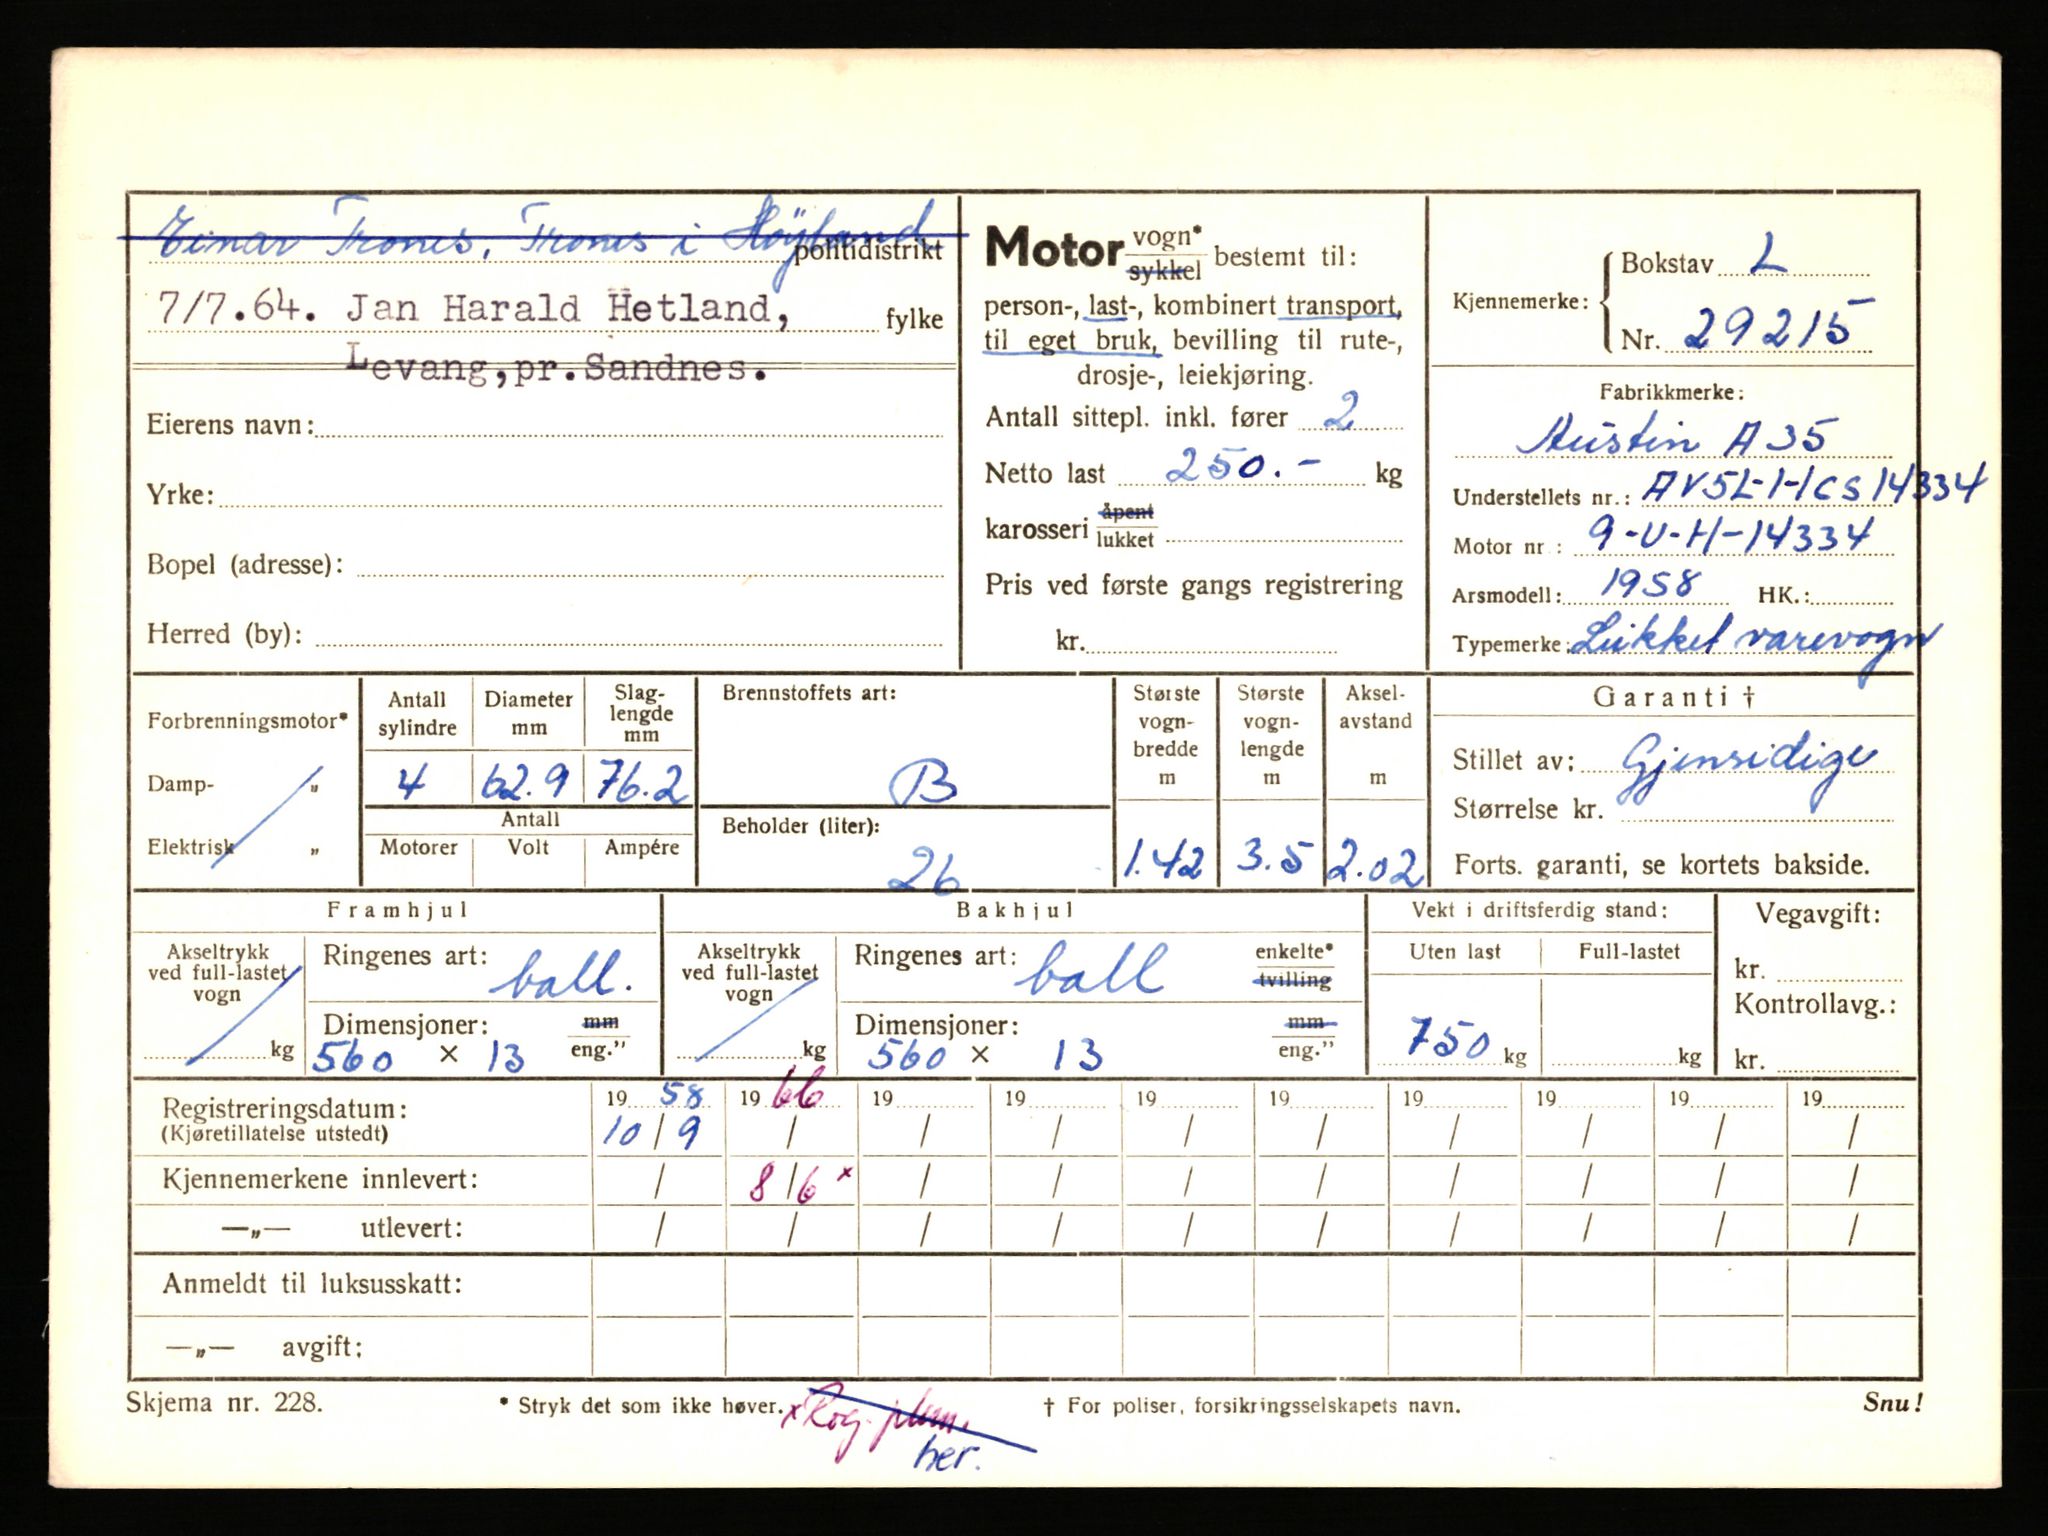 Einar Trones, Trones i Höyland
politidistrikt
7/7.64. Jan Harald Hetland,
fylke
Levang, pr. Sandnes.
Eierens navn:
Yrke:
Bopel (adresse):
Herred (by):
Motor vogn* sykkel bestemt til:
person-, last-, kombinert transport,
til eget bruk, bevilling til rute-,
drosje-, leiekjøring.
Antall sittepl. inkl. fører 2
Netto last 250.- kg
karosseri åpent lukket
Pris ved første gangs registrering
kr.
Kjennemerke: Bokstav L
Nr. 29215
Fabrikkmerke:
Austin A35
Understellets nr.: AV5L-HCS14334
Motor nr.: 9-U-H-14334
Arsmodell: 1958 HK.:
Typemerke: Lukket varevogn
Forbrenningsmotor*
Damp- „
Elektrisk „
Antall sylindre
Diameter mm
Slag-lengde mm
4 62.9 76.2
Antall
Motorer Volt Ampére
Brennstoffets art:
B
Beholder (liter):
26
Største vogn-bredde m
1.42
Største vogn-lengde m
3.5
Aksel-avstand m
2.02
Garanti †
Stillet av: Gjensidige
Størrelse kr.
Forts. garanti, se kortets bakside.
Framhjul
Akseltrykk ved full-lastet vogn
kg
Ringenes art: ball.
Dimensjoner: mm eng."
560 × 13
Bakhjul
Akseltrykk ved full-lastet vogn
kg
Ringenes art: ball enkelte* tvilling
Dimensjoner: mm eng."
560 × 13
Vekt i driftsferdig stand:
Uten last Full-lastet
750 kg kg
Vegavgift:
kr.
Kontrollavg.:
kr.
Registreringsdatum: 19 58 19 66 19 19 19 19 19 19 19 19
(Kjøretillatelse utstedt) 10/9 / / / / / / / / /
Kjennemerkene innlevert: / 8/6 x / / / / / / / /
—„— utlevert: / / / / / / / / / /
Anmeldt til luksusskatt:
—„— avgift:
Skjema nr. 228.
* Stryk det som ikke høver.
x Rog. plum.
† For poliser, forsikringsselskapets navn.
Snu!
her.